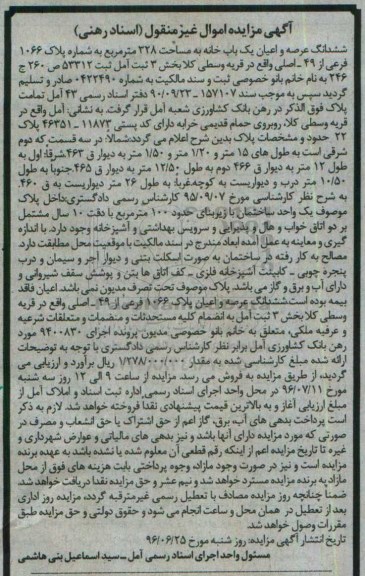 آگهی مزایده اموال غیرمنقول (اسناد رهنی)
ششدانگ عرصه و اعیان یک باب خانه به مساحت ۳۲۸ مترمربع به شماره پلاک ۱۰۶۶
فرعی از ۴۹ ـ اصلی واقع در قریه وسطی کلا بخش ۳ ثبت آمل ثبت ۵۳۳۱۲ ص ۲۶۰ ج
۲۴۶ به نام خانم بانو خصوصی ثبت و سند مالکیت به شماره ۰۴۲۲۴۹۰ صادر و تسلیم
گردید سپس به موجب سند ۱۵۷۱۰۷ ـ ۹۰/۰۹/۲۳ دفتر اسناد رسمی ۴۳ آمل تمامت
پلاک فوق الذکر در رهن بانک کشاورزی شعبه آمل قرار گرفت. به نشانی: آمل واقع در
قریه وسطی کلا، روبروی حمام قدیمی خرابه دارای کد پستی ۱۱۸۷۳ ـ ۴۶۳۵۱ پلاک
۲۲ حدود و مشخصات پلاک بدین شرح اعلام می گردد:شمالا: در سه قسمت که دوم
شرقی است به طول های ۱۵ متر و ۱/۲۰ متر و ۱/۵۰ متر به دیوار ق ۴۶۳شرقا: اول به
طول ۱۲ متر به دیوار ق ۴۶۶ دوم به طول ۱۲/۵۰ متر به دیوار ق ۴۶۵.جنوبا به طول
۱۰/۵۰ متر درب و دیواریست به کوچه.غربا: به طول ۲۶ متر دیواریست به ق ۴۶۰.
به شرح نظر کارشناسی مورخ ۹۵/۰۹/۰۷ کارشناس رسمی دادگستری:داخل پلاک
موصوف یک واحد ساختمان با زیربنای حدود ۱۰۰ مترمربع با دقت ۱۰ سال مشتمل
بر دو اتاق خواب و هال و پذیرایی و سرویس بهداشتی و آشپزخانه وجود دارد. با اندازه
گیری و معاینه به عمل آمده ابعاد مندرج در سند مالکیت با موقعیت محل مطابقت دارد.
مصالح به کار رفته در ساختمان به صورت اسکلت بتنی و دیوار آجر و سیمان و درب
پنجره چوبی ـ کابینت آشپزخانه فلزی ـ کف اتاق ها بتن و پوشش سقف شیروانی و
دارای آب و برق و گاز می باشد. پلاک موصوف تحت تصرف مدیون نمی باشد. اعیان فاقد
بیمه بوده است.ششدانگ عرصه و اعیان پلاک ۱۰۶۶ فرعی از ۴۹ ـ اصلی واقع در قریه
وسطی کلا بخش ۳ ثبت آمل به انضمام کلیه مستحدثات و منضمات و متعلقات شرعیه
و عرفیه ملکی، متعلق به خانم بانو خصوصی مدیون پرونده اجرای ۹۴۰۰۸۳۰ مورد
رهن بانک کشاورزی آمل برابر نظر کارشناس رسمی دادگستری با توجه به توضیحات
ارائه شده مبلغ کارشناسی شده به مقدار ۱/۲۷۸/۰۰۰/۰۰۰ ریال برآورد و ارزیابی می
گردید، از طریق مزایده به فروش می رسد. مزایده از ساعت ۹ الی ۱۲ روز سه شنبه
مورخ ۹۶/۰۷/۱۱ در محل واحد اجرای اسناد رسمی اداره ثبت اسناد و املاک آمل از
مبلغ ارزیابی آغاز و به بالاترین قیمت پیشنهادی نقدا فروخته خواهد شد. لازم به ذکر
است پرداخت بدهی های آب، برق، گاز اعم از حق اشتراک یا حق انشعاب و مصرف در
صورتی که مورد مزایده دارای آنها باشد و نیز بدهی های مالیاتی و عوارض شهرداری و
غیره تا تاریخ مزایده اعم از اینکه رقم قطعی آن معلوم شده یا نشده باشد به عهده برنده
مزایده است و نیز در صورت وجود مازاد، وجوه پرداختی بابت هزینه های فوق از محل
مازاد به برنده مزایده مسترد خواهد شد و نیم عشر و حق مزایده نقدا دریافت خواهد شد.
ضمنا چنانچه روز مزایده مصادف با تعطیل رسمی غیرمترقبه گردد، مزایده روز اداری
بعد از تعطیل در همان محل و ساعت انجام می شود و حقوق دولتی و حق مزایده طبق
مقررات وصول خواهد شد.
تاریخ انتشار آگهی مزایده: روز شنبه مورخ ۹۶/۰۶/۲۵
مسئول واحد اجرای اسناد رسمی آمل ـ سید اسماعیل بنی هاشمی